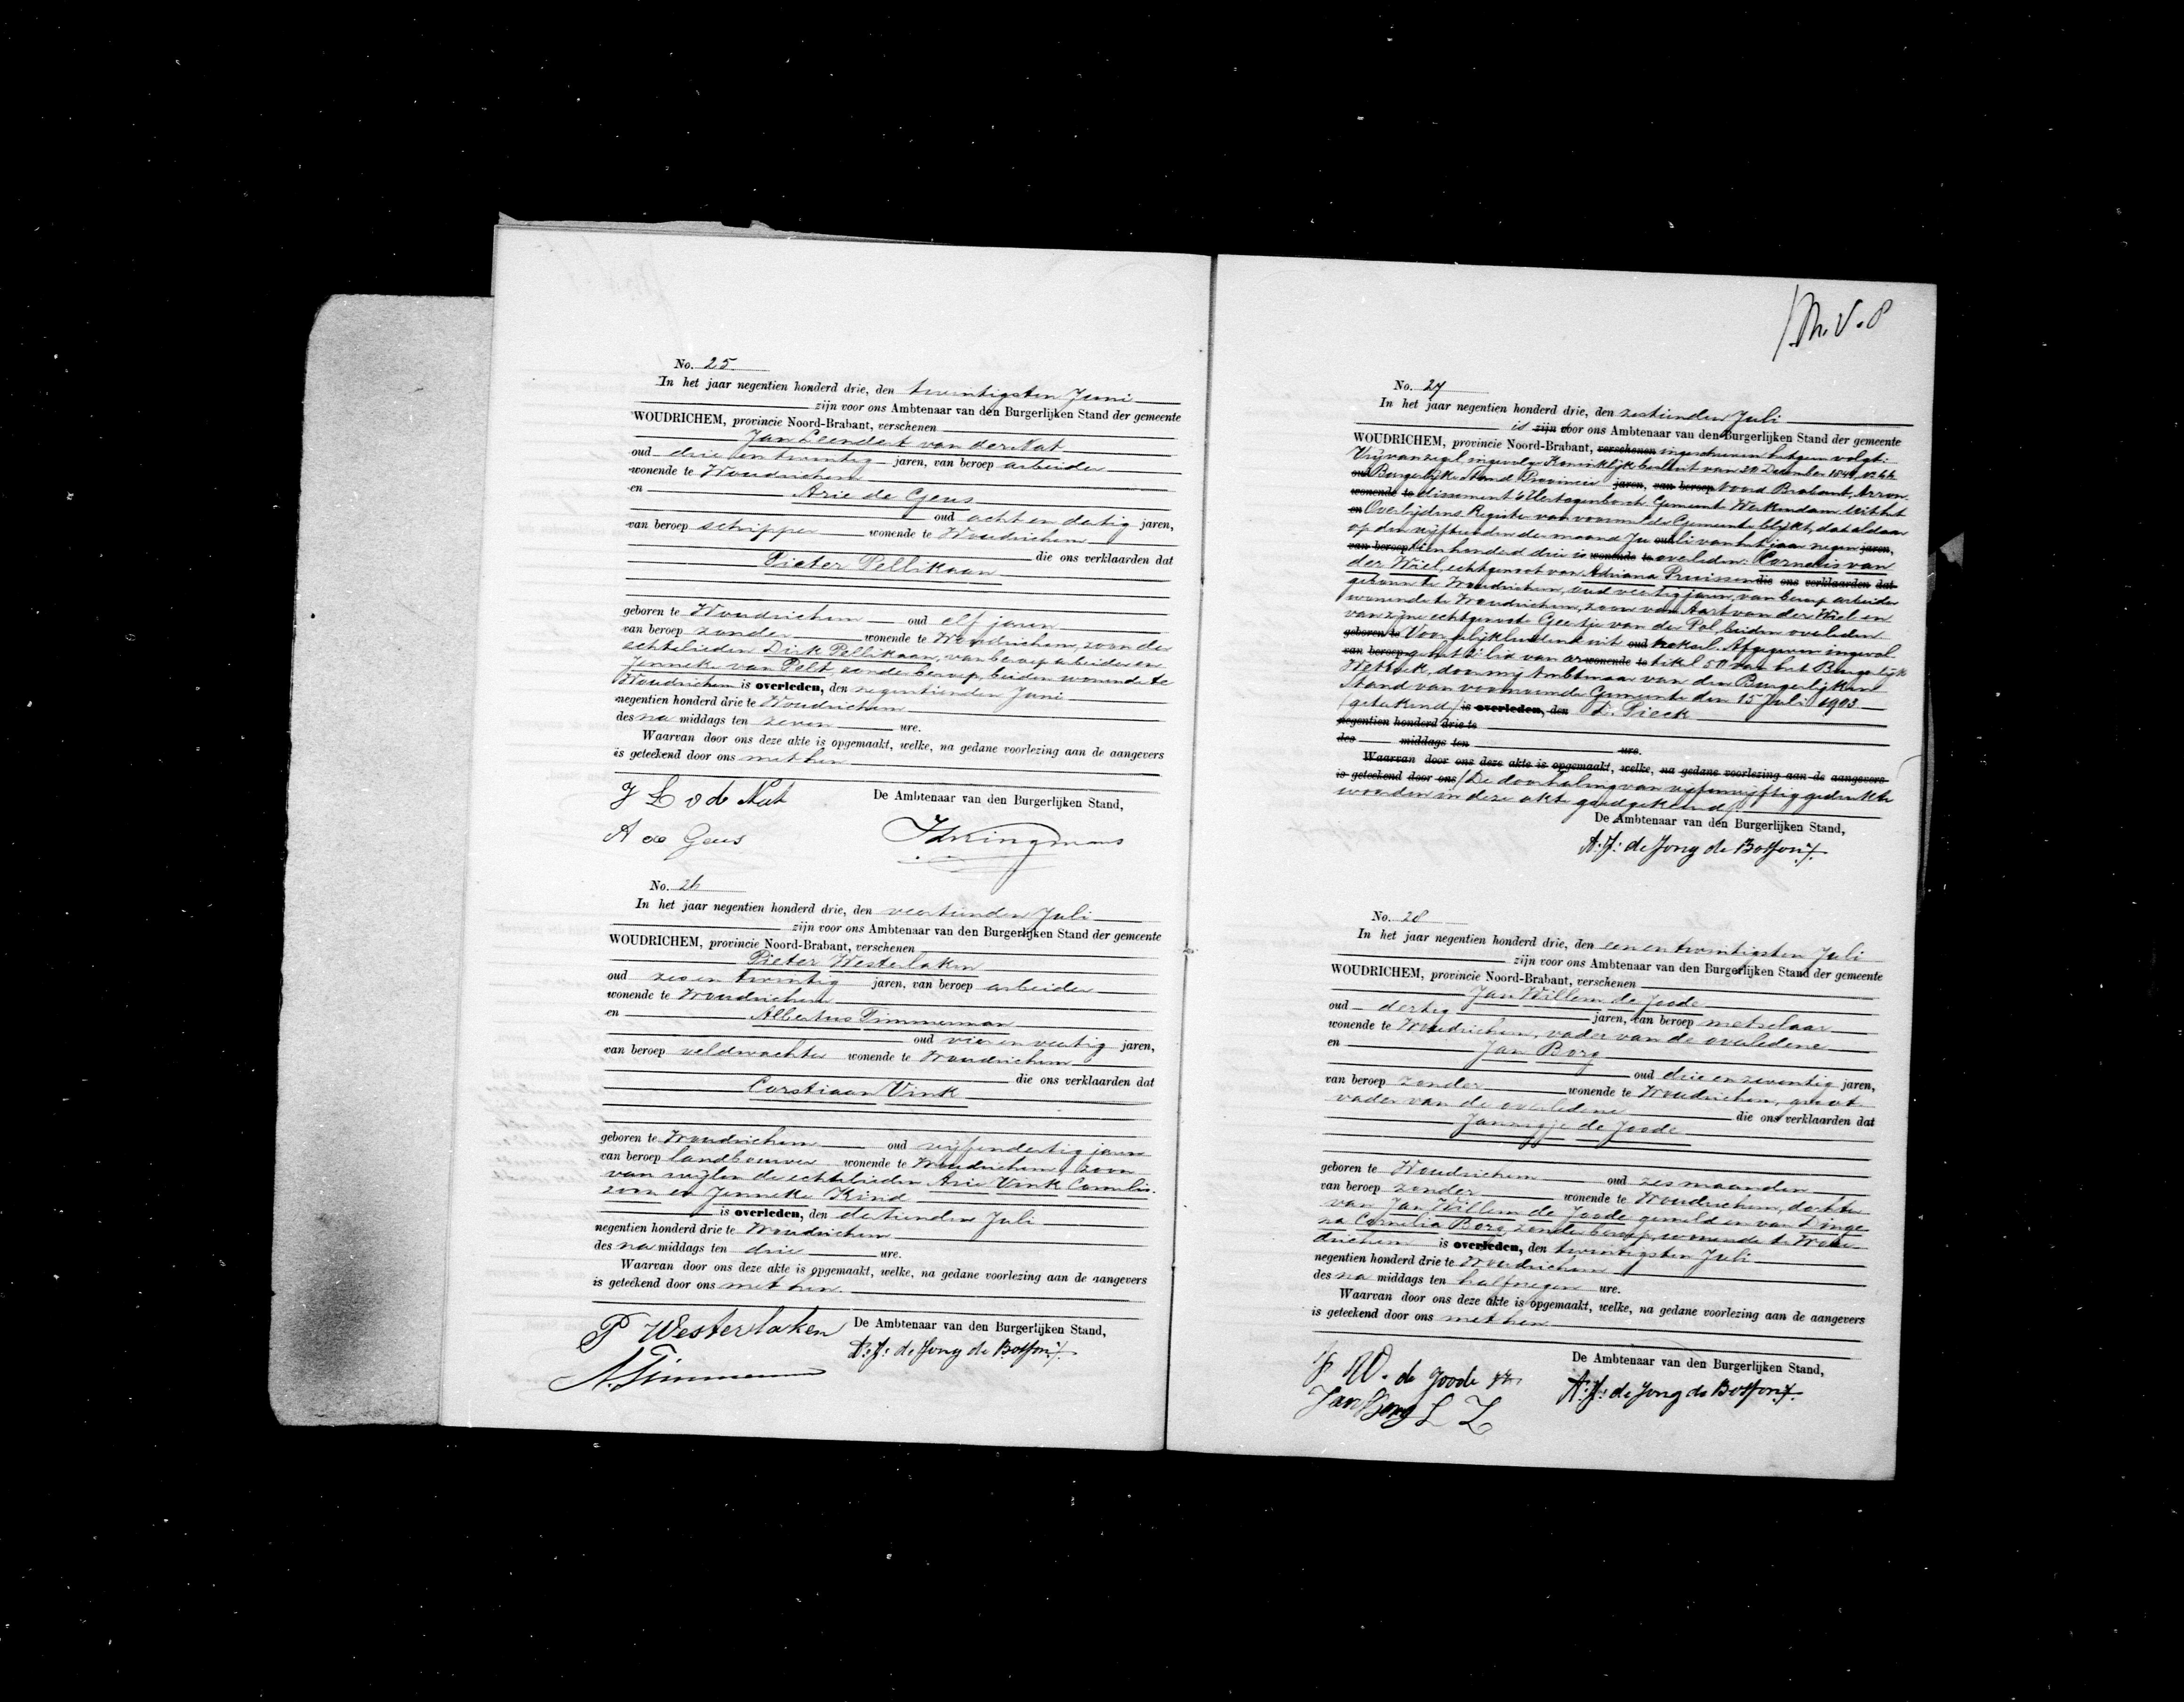 No. 25.
In het jaar negentien honderd drie, den twintigsten Juni
zijn voor ons Ambtenaar van den Burgerlijken Stand der gemeente
WOUDRICHEM, provincie Noord-Brabant, verschenen
Jan Leendert van der Nat
oud drie en twintig jaren, van beroep arbeider
wonende te Woudrichem
en Arie de Geus
oud acht en dertig jaren,
van beroep schipper wonende te Woudrichem
die ons verklaarden dat
Pieter Pellikaan
geboren te Woudrichem oud elf jaren
van beroep zonder wonende te Woudrichem, zoon der
echtelieden Dirk Pellikaan, van beroep arbeider en
Jenneke van Pelt, zonder beroep, beiden wonende te
Woudrichem is overleden, den negentienden Juni
negentien honderd drie te Woudrichem
des na middags ten zeven ure.
Waarvan door ons deze akte is opgemaakt, welke, na gedane voorlezing aan de aangevers
is geteekend door ons met hen
J L v de Nat
De Ambtenaar van den Burgerlijken Stand,
A de Geus
No. 26
In het jaar negentien honderd drie, den veertienden Juli
zijn voor ons Ambtenaar van den Burgerlijken Stand der gemeente
WOUDRICHEM, provincie Noord-Brabant, verschenen
Pieter Westerlaken
oud zes en twintig jaren, van beroep arbeider
wonende te Woudrichem
en Albertus Timmerman
oud vier en veertig jaren,
van beroep veldwachter wonende te Woudrichem
die ons verklaarden dat
Corstiaan Vink
geboren te Woudrichem oud vijfendertig jaren
van beroep landbouwer wonende te Woudrichem, zoon
van wijlen de echtelieden Arie Vink Cornelis-
zoon en Jenneke Kind
is overleden, den dertienden Juli
negentien honderd drie te Woudrichem
des na middags ten drie ure.
Waarvan door ons deze akte is opgemaakt, welke, na gedane voorlezing aan de aangevers
is geteekend door ons met hen.
P Westerlaken
De Ambtenaar van den Burgerlijken Stand,
A. Timmerman
A.J: de Jong de Bosson
M.V.P
No. 27
In het jaar negentien honderd drie, den zestienden Juli
is zijn voor ons Ambtenaar van den Burgerlijken Stand der gemeente
WOUDRICHEM, provincie Noord-Brabant, verschenen ingeschreven hetgeen volgt:
Vrij van zegel ingevolge Koninklijk besluit van 20 December 1841
oud Burgerlijke Stand Provincie jaren, van beroep Noord Brabant, Arron-
wonende te dissement 's Hertogenbosch Gemeente Werkendam Uit het
en Overlijdens Register van voormelde Gemeente blijkt, dat aldaar
op den vijftienden der maand Ju oud li van het jaar negen jaren,
van beroep tien honderd drie is wonende te overleden: Cornelis van
der Wiel, echtgenoot van Adriana Pruissen die ons verklaarden dat
geboren te Woudrichem, oud veertig jaren, van beroep arbeider
wonende te Woudrichem, zoon van Aart van der Wiel en
van zijne echtgenoote Geertje van der Pol, beiden overleden
geboren te Voor gelijkluidend uit oud trekssel. Afgegeven ingevol-
van beroep ge het 2e lid van ar wonende te tikel 50 van het Burgerlijk
Wetboek, door mij Ambtenaar van den Burgerlijken
Stand van voornoemde Gemeente den 15 Juli 1903
(geteekend) is overleden, den D. Pieck
negentien honderd drie te
des middags ten ure.
Waarvan door ons deze akte is opgemaakt, welke, na gedane voorlezing aan de aangevers
is geteekend door ons (De doorhaling van vijfenvijftig gedrukte
woorden in deze akte goedgekeurd)
De Ambtenaar van den Burgerlijken Stand,
A.J: de Jong de Bosson
No. 28
In het jaar negentien honderd drie, den een en twintigsten Juli
zijn voor ons Ambtenaar van den Burgerlijken Stand der gemeente
WOUDRICHEM, provincie Noord-Brabant, verschenen
Jan Willem de Joode
oud dertig jaren, van beroep metselaar
wonende te Woudrichem, vader van de overledene
en Jan Borg
oud drie en zeventig jaren,
van beroep zonder wonende te Woudrichem, groot-
vader van de overledene die ons verklaarden dat
Jannigje de Joode
geboren te Woudrichem oud zes maanden
van beroep zonder wonende te Woudrichem, dochter
van Jan Willem de Joode gemeld en van Dinge-
na Cornelia Borg zonder beroep, wonende te Wou-
drichem is overleden, den twintigsten Juli
negentien honderd drie te Woudrichem
des na middags ten halfnegen ure.
Waarvan door ons deze akte is opgemaakt, welke, na gedane voorlezing aan de aangevers
is geteekend door ons met hen
J. W. de Joode
De Ambtenaar van den Burgerlijken Stand,
Jan Borg L Z
A.J: de Jong de Bosson